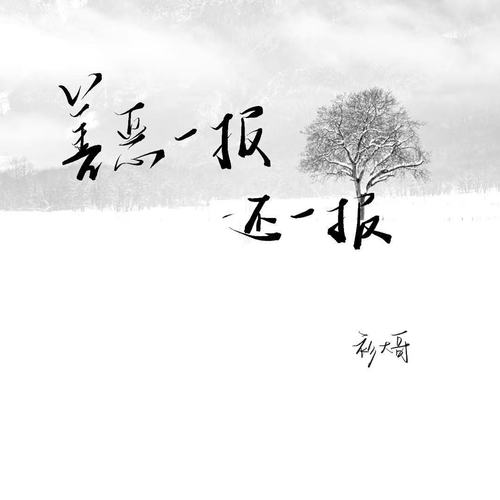 善恶一报
还一报
衫大哥